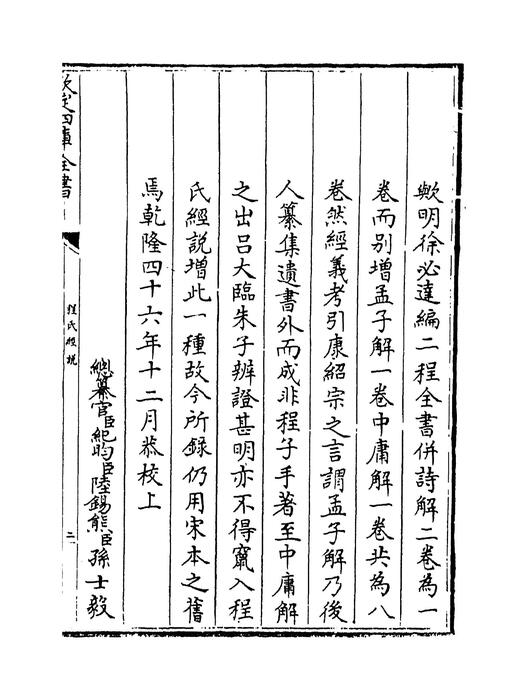 歟明徐必達編二程全書併詩解二卷為一
卷而别增孟子解一卷中庸解一卷共為八
卷然經義考引康紹宗之言謂孟子解乃後
人纂集遺書外而成非程子手著至中庸解
之出吕大臨朱子辨證甚明亦不得竄入程
氏經說增此一種故今所錄仍用宋本之舊
焉乾隆四十六年十二月恭校上
總纂官臣紀昀臣陸錫熊臣孫士毅
欽定四庫全書
程氏經說
二